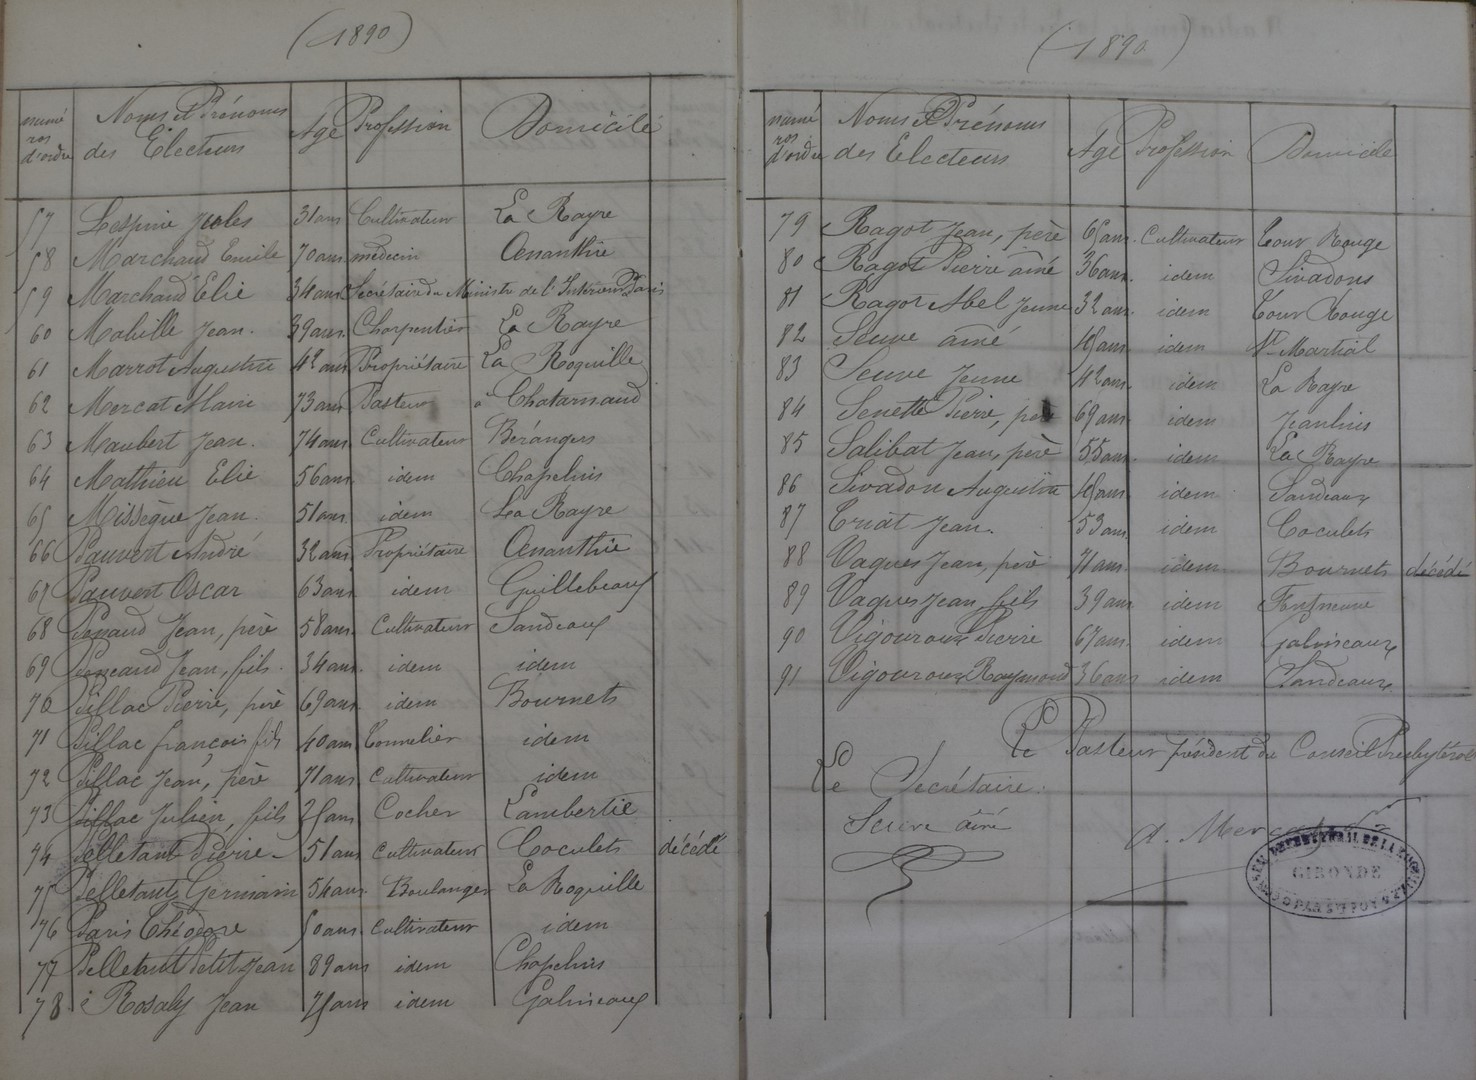 (1890)
numé
ros
d'ordre
Noms et Prénoms
des Electeurs
Age Profession Domicile
57 Lespine Jules 31 ans Cultivateur La Rayre
58 Marchand Emile 70 ans médecin Ananthie
59 Marchand Elie 34 ans Secrétaire du Ministre de l'Intérieur Paris
60 Mabille Jean. 39 ans. Charpentier La Rayre
61 Marrot Augustin 42 ans Propriétaire La Roquille
62 Mercat Alain 73 ans Pasteur Chatarnaud
63 Maubert Jean. 74 ans Cultivateur Bérangers
64 Mathieu Elie 56 ans idem Chapelins
65 Missègue Jean. 51 ans. idem La Rayre
66 Pauvert André 32 ans Propriétaire Ananthie
67 Pauvert Oscar 63 ans idem Guillebeaux
68 Jean, père 58 ans. Cultivateur Sandeaux
69 Jean, fils. 34 ans. idem idem
70 Pillac Pierre, père 69 ans. idem Bournets
71 Pillac françois fils 40 ans Tonnelier idem
72 Pillac Jean, père 71 ans Cultivateur idem
73 Pillac Julien, fils ans Cocher Lambertie
74 Pelletant Pierre 51 ans Cultivateur Coculets décédé
75 Pelletant Germain 54 ans. Boulanger La Roquille
76 Paris Théodore 50 ans Cultivateur idem
77 Pelletant Petit Jean 89 ans idem Chapelins
78 Rosaly Jean ans idem Galineaux
(1890)
numé
ros
d'ordre
Noms et Prénoms
des Electeurs
Age Profession Domicile
79 Ragot Jean, père 65 ans. Cultivateur Tour Rouge
80 Ragot Pierre aîné 36 ans. idem Sivadons
81 Ragot Abel Jeune 32 ans. idem Tour Rouge
82 Seuve aîné ans idem St Martial
83 Seuve Jeune 42 ans. idem La Rayre
84 Senette Pierre, père 69 ans. idem Jeanluis
85 Salibat Jean, père 55 ans. idem La Rayre
86 Sivadon Augustin ans. idem Sandeaux
87 Jean. 53 ans. idem Coculets
88 Vaques Jean, père 71 ans. idem Bournets décédé
89 Vaques Jean fils 39 ans idem Fontneuve
90 Vigouroux Pierre 67 ans. idem Galineaux
91 Vigouroux Raymond 36 ans idem Sandeaux
Le Pasteur président du Conseil Presbytéral
Le Secrétaire.
Seuve aîné
A. Mercat
GIRONDE